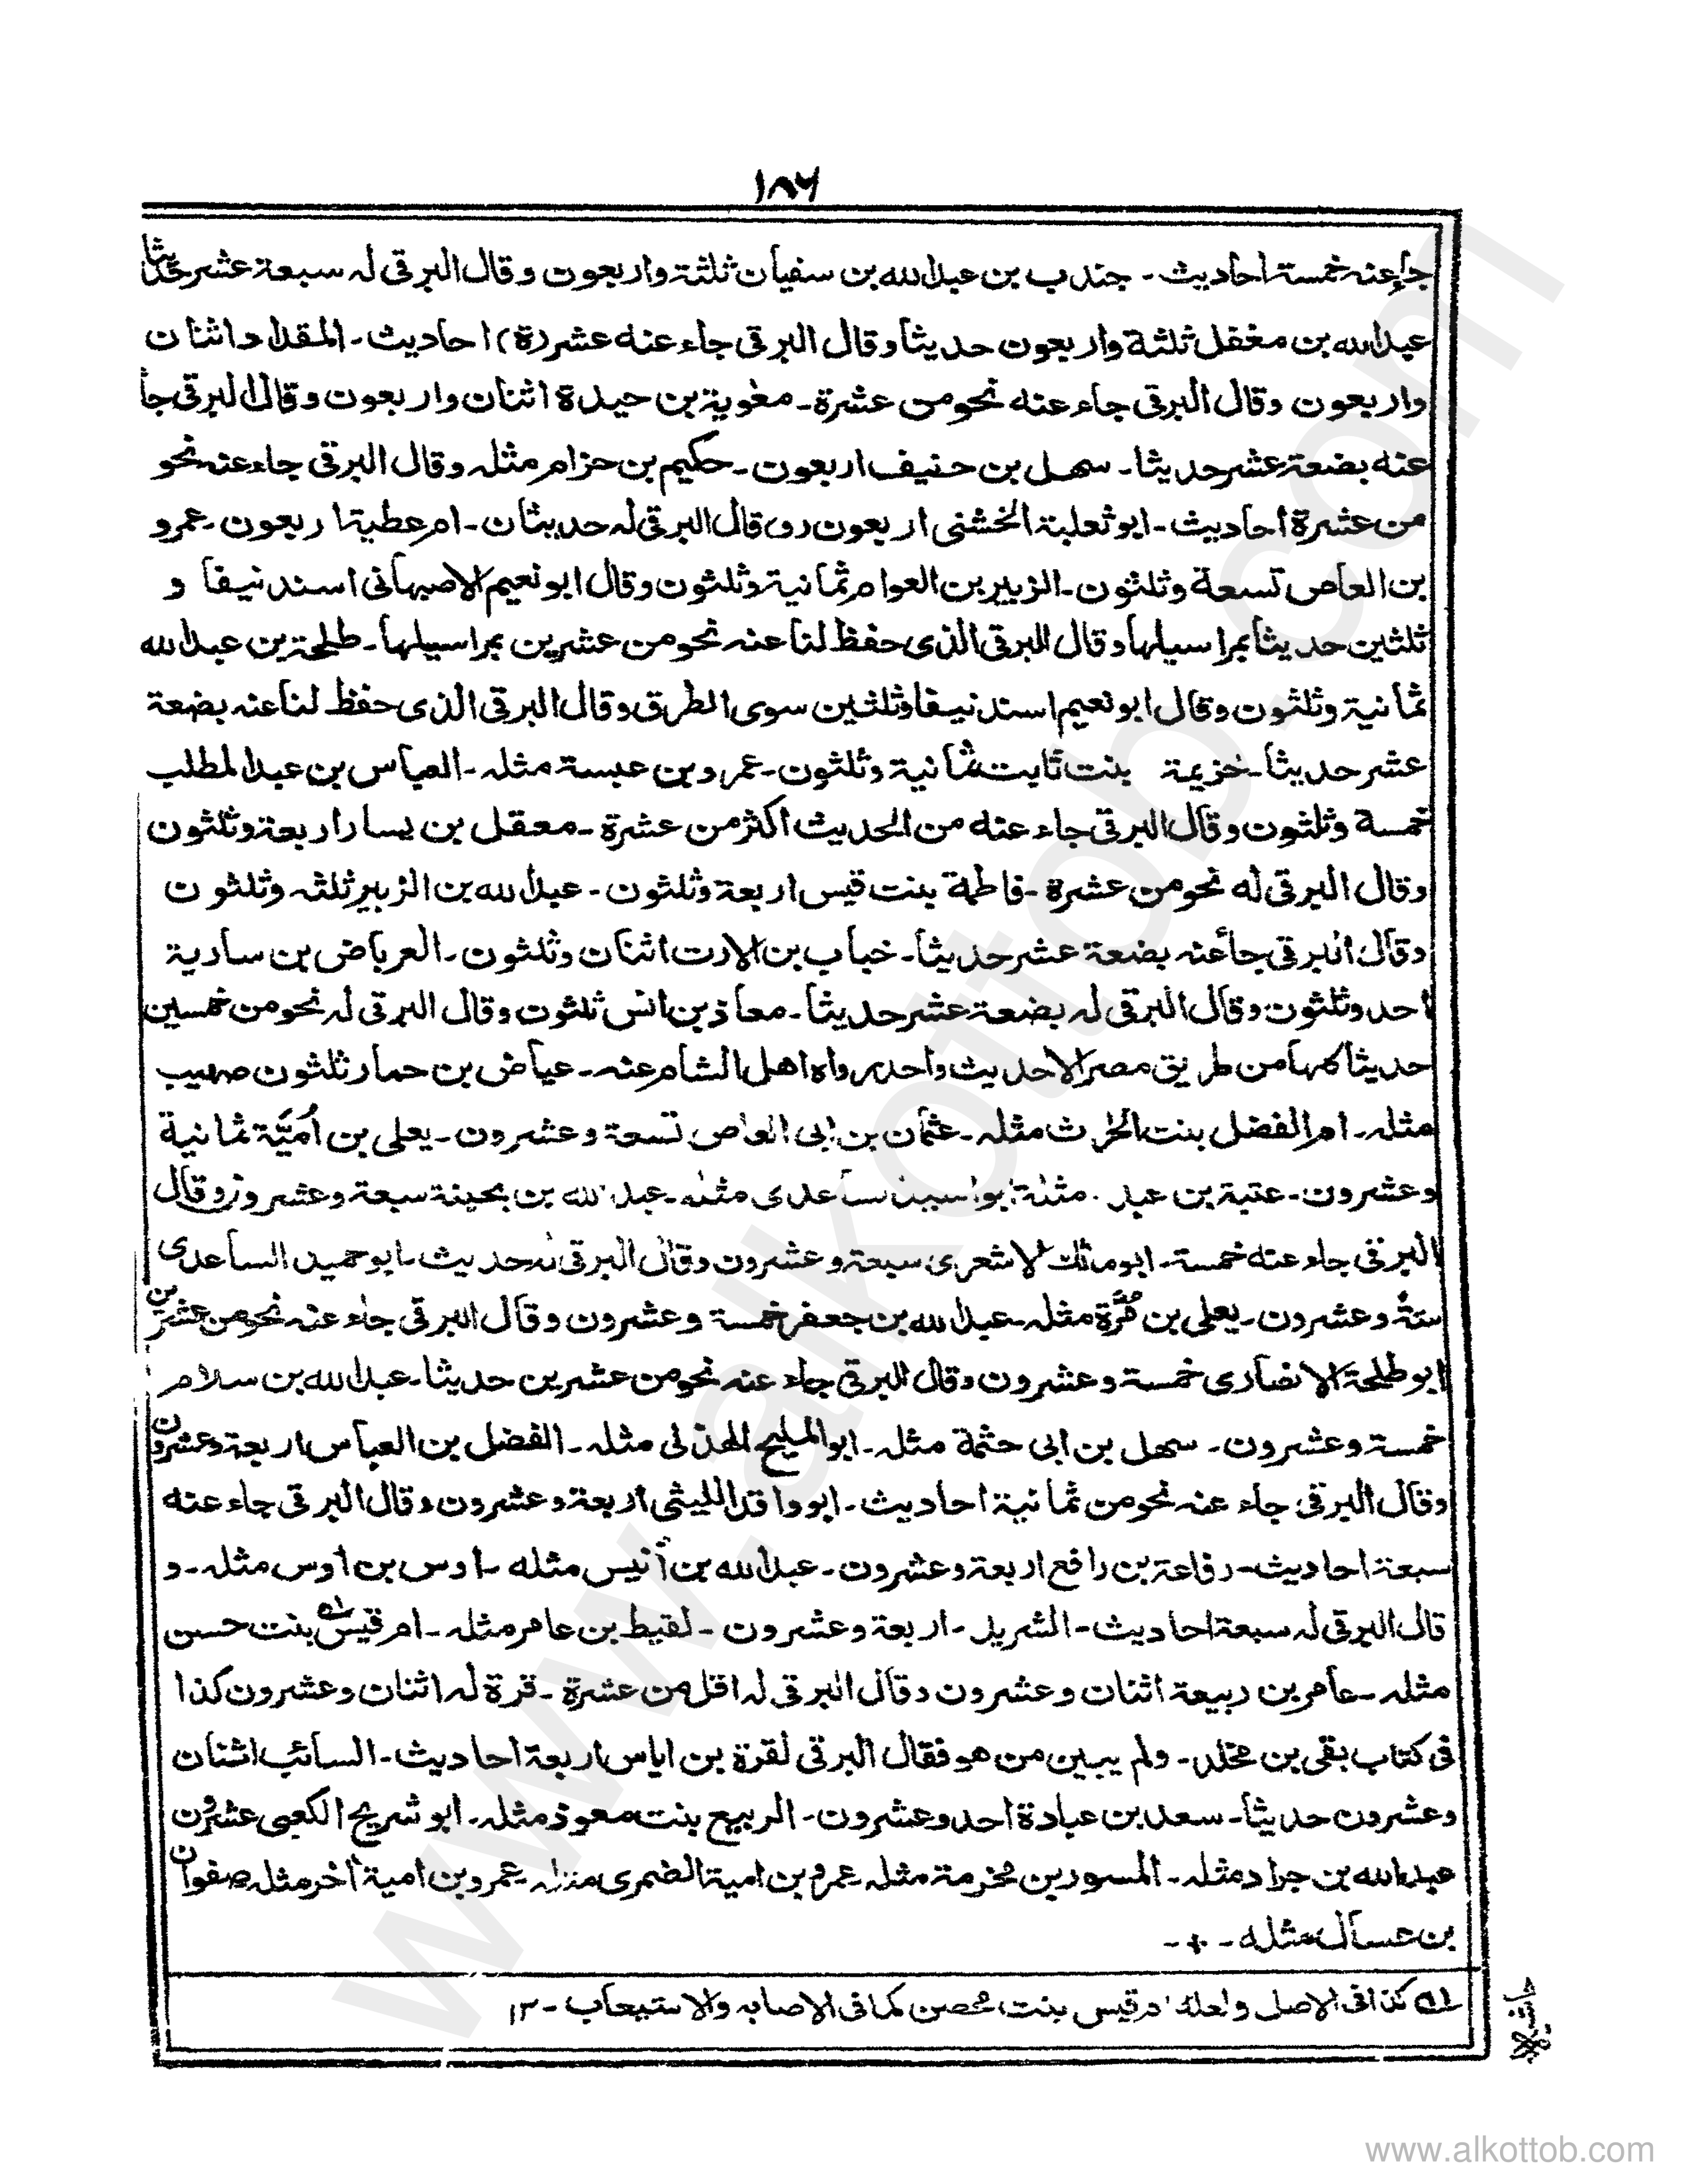 ١٨٦
جاء عنه خمسة احاديث - جندب بن عبد الله بن سفيان ثلثة واربعون وقال البرقى له سبعة عشر حديثا
عبد الله بن مغفل ثلثة واربعون حديثا وقال البرقى جاء عنه عشر(ة) احاديث - المقداد اثنان
واربعون وقال البرقى جاء عنه نحو من عشرة - معٰوية بن حيدة اثنان واربعون وقال البرقى جاء
عنه بضعة عشر حديثا - سهل بن حنيف اربعون - حكيم بن حزام مثله وقال البرقى جاء عنه نحو
من عشرة احاديث - ابو ثعلبة الخشنى اربعون (و) قال البرقى له حديثان - ام عطية اربعون - عمرو
بن العاص تسعة وثلثون - الزبير بن العوام ثمانية وثلثون وقال ابو نعيم الاصبهانى اسند نيفا و
ثلثين حديثا بمراسيلها وقال البرقى الذى حفظ لنا عنه نحو من عشرين بمراسيلها - طلحة بن عبد الله
ثمانية وثلثون وقال ابو نعيم اسند نيفا وثلثين سوى الطرق وقال البرقى الذى حفظ لنا عنه بضعة
عشر حديثا - خزيمة بنت ثابت ثمانية وثلثون - عمرو بن عبسة مثله - العباس بن عبد المطلب
خمسة وثلثون وقال البرقى جاء عنه من الحديث اكثر من عشرة - معقل بن يسار اربعة وثلثون
وقال البرقى له نحو من عشرة - فاطمة بنت قيس اربعة وثلثون - عبد الله بن الزبير ثلثه وثلثون
وقال البرقى جاء عنه بضعة عشر حديثا - خباب بن الارت اثنان وثلثون - العرباض بن سارية
احد وثلثون وقال البرقى له بضعة عشر حديثا - معاذ بن انس ثلثون وقال البرقى له نحو من خمسين
حديثا كلها من طريق مصر الا حديث واحد رواه اهل الشام عنه - عياض بن حمار ثلثون صهيب
مثله - ام الفضل بنت الحٰرث مثله - عثمان بن ابى العاص تسعة وعشرون - يعلى بن اُميّة ثمانية
وعشرون - عتبة بن عبد مثله ابو اسيد ساعدى مثله - عبد الله بن بحينة سبعة وعشرون وقال
البرقى جاء عنه خمسة - ابو مالك الاشعرى سبعة وعشرون وقال البرقى له حديث - ابو حميد الساعدى
ستة وعشرون - يعلى بن مُرّة مثله - عبد الله بن جعفر خمسة وعشرون وقال البرقى جاء عنه نحو من عشرين
ابو طلحة الانصارى خمسة وعشرون وقال البرقى جاء عنه نحو من عشرين حديثا - عبد الله بن سلام
خمسة وعشرون - سهل بن ابى حثمة مثله - ابو المليح الهذلى مثله - الفضل بن العباس اربعة وعشرون
وقال البرقى جاء عنه نحو من ثمانية احاديث - ابو واقد الليثى اربعة وعشرون وقال البرقى جاء عنه
سبعة احاديث - رفاعة بن رافع اربعة وعشرون - عبد الله بن اُنيس مثله - اوس بن اوس مثله - و
قال البرقى له سبعة احاديث - الشريد - اربعة وعشرون - لقيط بن عامر مثله - ام قيس ؂١ بنت حسن
مثله - عامر بن ربيعة اثنان وعشرون وقال البرقى له اقل من عشرة - قرة له اثنان وعشرون كذا
فى كتاب بقى بن مخلد - ولم يبين من هو فقال البرقى لقرة بن اياس اربعة احاديث - السائب اثنان
وعشرون حديثا - سعد بن عبادة احد وعشرون - الربيع بنت معوذ مثله - ابو شريح الكعبى عشرون
عبد الله بن جراد مثله - المسور بن مخرمة مثله عمرو بن امية الضمرى مثله عمرو بن امية آخر مثله صفوان
بن عسال مثله - + -
؂١ كذا فى الاصل ولعله ام قيس بنت محصن كما فى الاصابه والاستيعاب - ١٢
حاشيه
www.alkottob.com
www.alkottob.com